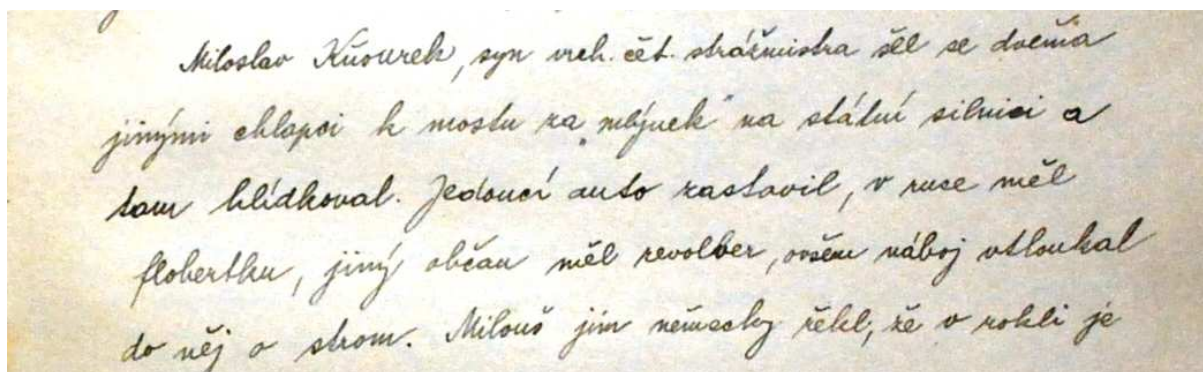 Miloslav Kňourek, syn vrch. čet. strážmistra šel se dvěma
jinými chlapci k mostu za „mlýnek" na státní silnici a
tam hlídkoval. Jedoucí auto zastavil, v ruce měl
flobertku, jiný občan měl revolber, ovšem náboj vtloukal
do něj o strom. Milouš jim německy řekl, že v rokli je